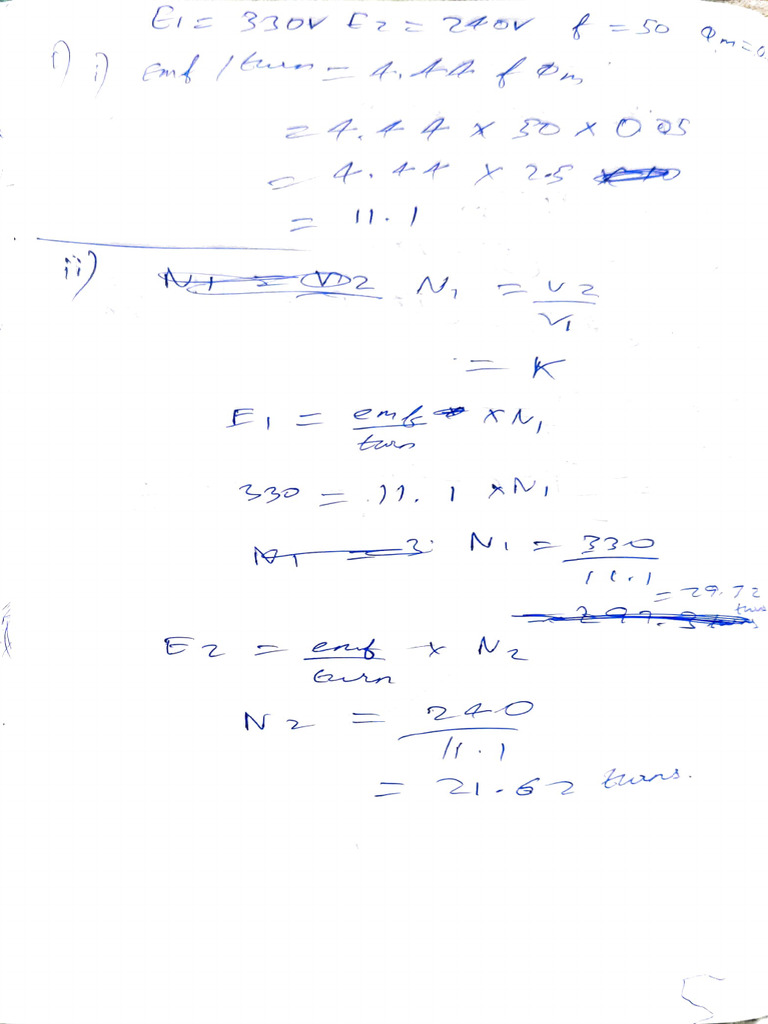 E1 = 330V E2 = 240V f = 50 Φm=0
1) i) emf / turn = 4.44 f Φm
= 4.44 x 50 x 0.05
= 4.44 x 2.5
= 11.1
ii) N1 = V2 N1 = V2 / V1
= K
E1 = emf / turn x N1
330 = 11.1 x N1
N1 = 3 N1 = 330 / 11.1
= 29.72 turns
E2 = emf / turn x N2
N2 = 240 / 11.1
= 21.62 turns.
5